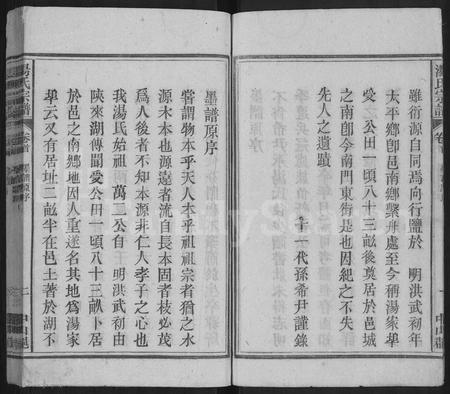 雖衍源自同焉向行鹽於　明洪武初年
太平鄉卽邑南鄉繄井處至今稱湯家壆
愛之公田一頃八十三畝後奠居於邑城
之南卽今南門東街是也因紀之不失
先人之遺蹟
十一代孫希尹謹錄
湯氏宗譜
卷首
墨譜原序
嘗謂物本乎天人本乎祖祖宗者猶之水
源木本也源遠者流自長本固者枝必茂
爲人後者不知本源非仁人孝子之心也
我湯氏始祖　萬二公自　明洪武初由
陝來湖傳聞愛公田一頃八十三畝卜居
於邑之南鄉地因人重遂名其地爲湯家
壆云又有居址二畝半在邑土著於湖不
湯氏宗譜
卷首
舊譜原序
二
中山